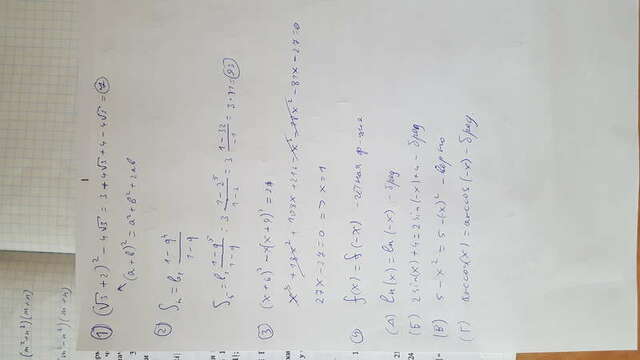 (m²+n²)(m+n)
m²-n²)(m+n)
1
① (√3 + 2)² - 4√3 = 3 + 4√3 + 4 - 4√3 = 7
(a+b)² = a² + b² + 2ab
② Sₙ = b₁ (1-q⁴)/(1-q)
S₅ = b₁ (1-q⁵)/(1-q) = 3 (1-2⁵)/(1-2) = 3 (1-32)/(-1) = 3·31 = 93
③ (x+6)³ - x(x+9)² = 2
x³ + 18x² + 108x + 216 - x³ - 18x² - 81x - 27 = 0
27x - 27 = 0 => x = 1
④ f(x) = f(-x) - четная ф-ция
(А) ln(x) = ln(-x) - бред
(Б) 2sin(x)+4 = 2sin(-x)+4 - бред
(В) 5 - x² = 5 - (-x)² - верно
(Г) arccos(x) = arccos(-x) - бред